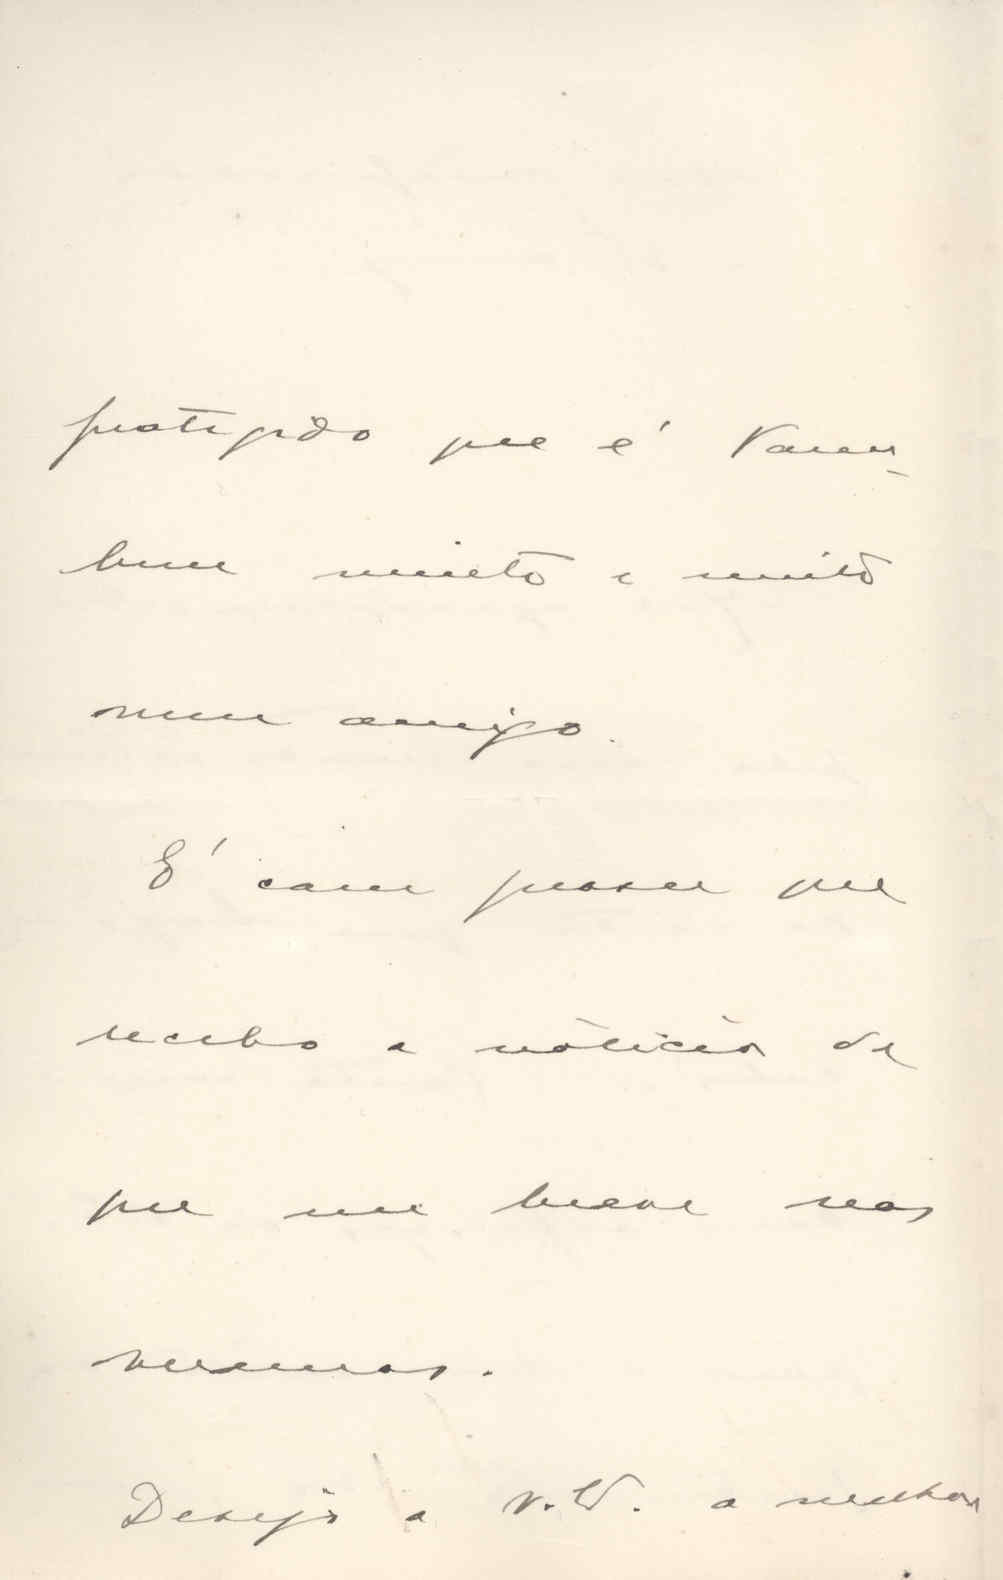 protegido que é tam-
bem muito e muito
meu amigo.
É com prazer que
recebo a noticia de
que em breve nos
veremos.
Desejo a V. a melhor